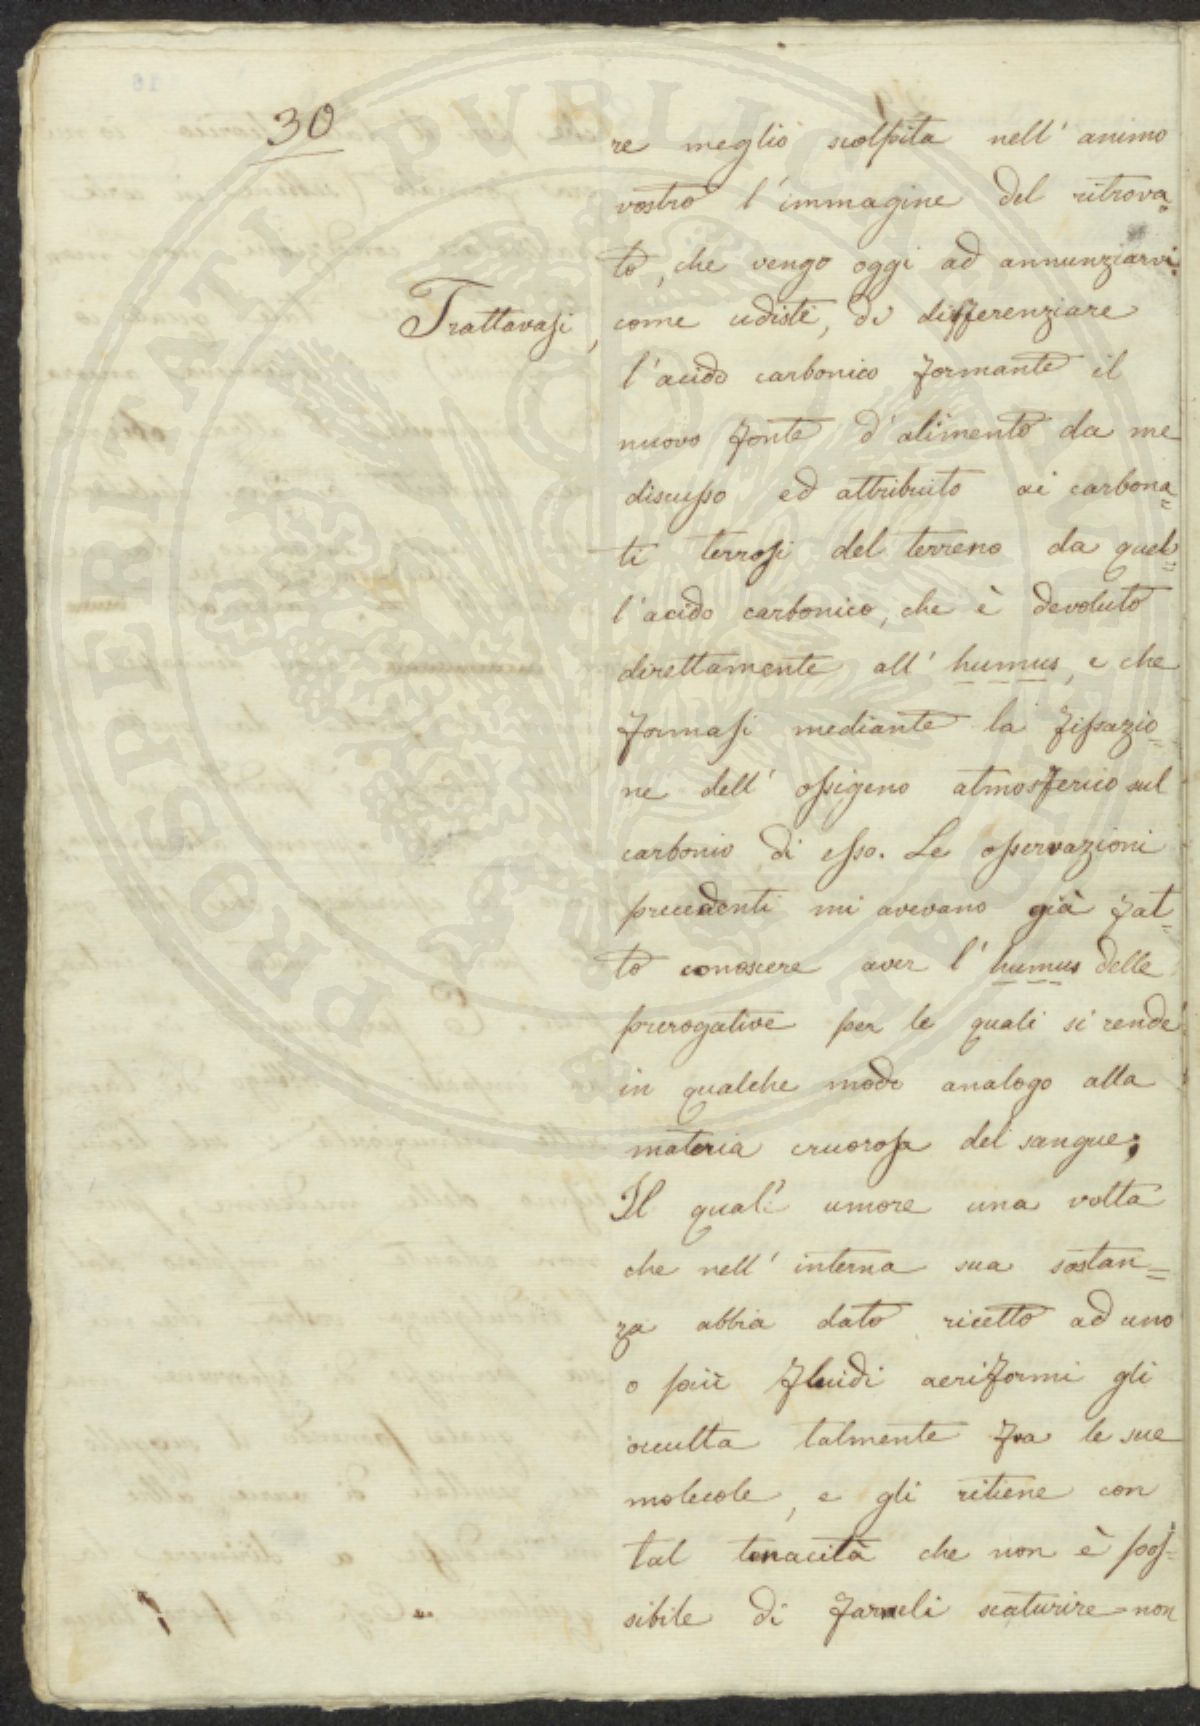 30
re meglio scolpita nell' animo
vostro l' immagine del ritrova=
to, che vengo oggi ad annunziarvi.
Trattavasi, come udiste, di differenziare
l'acido carbonico formante il
nuovo fonte d'alimento da me
discusso ed attribuito ai carbona=
ti terrosi del terreno da quel=
l'acido carbonico, che è devoluto
direttamente all' humus, e che
formasi mediante la fissazio=
ne dell' ossigeno atmosferico sul
carbonio di esso. Le osservazioni
precedenti mi avevano già fat=
to conoscere aver l' humus delle
prerogative per le quali si rende
in qualche modo analogo alla
materia cruorosa del sangue;
Il qual' umore una volta
che nell' interna sua sostan=
za abbia dato ricetto ad uno
o più fluidi aeriformi gli
occulta talmente fra le sue
molecole, e gli ritiene con
tal tenacità che non è pos=
sibile di farneli scaturire non
PROSPERITATI PUBLICAE